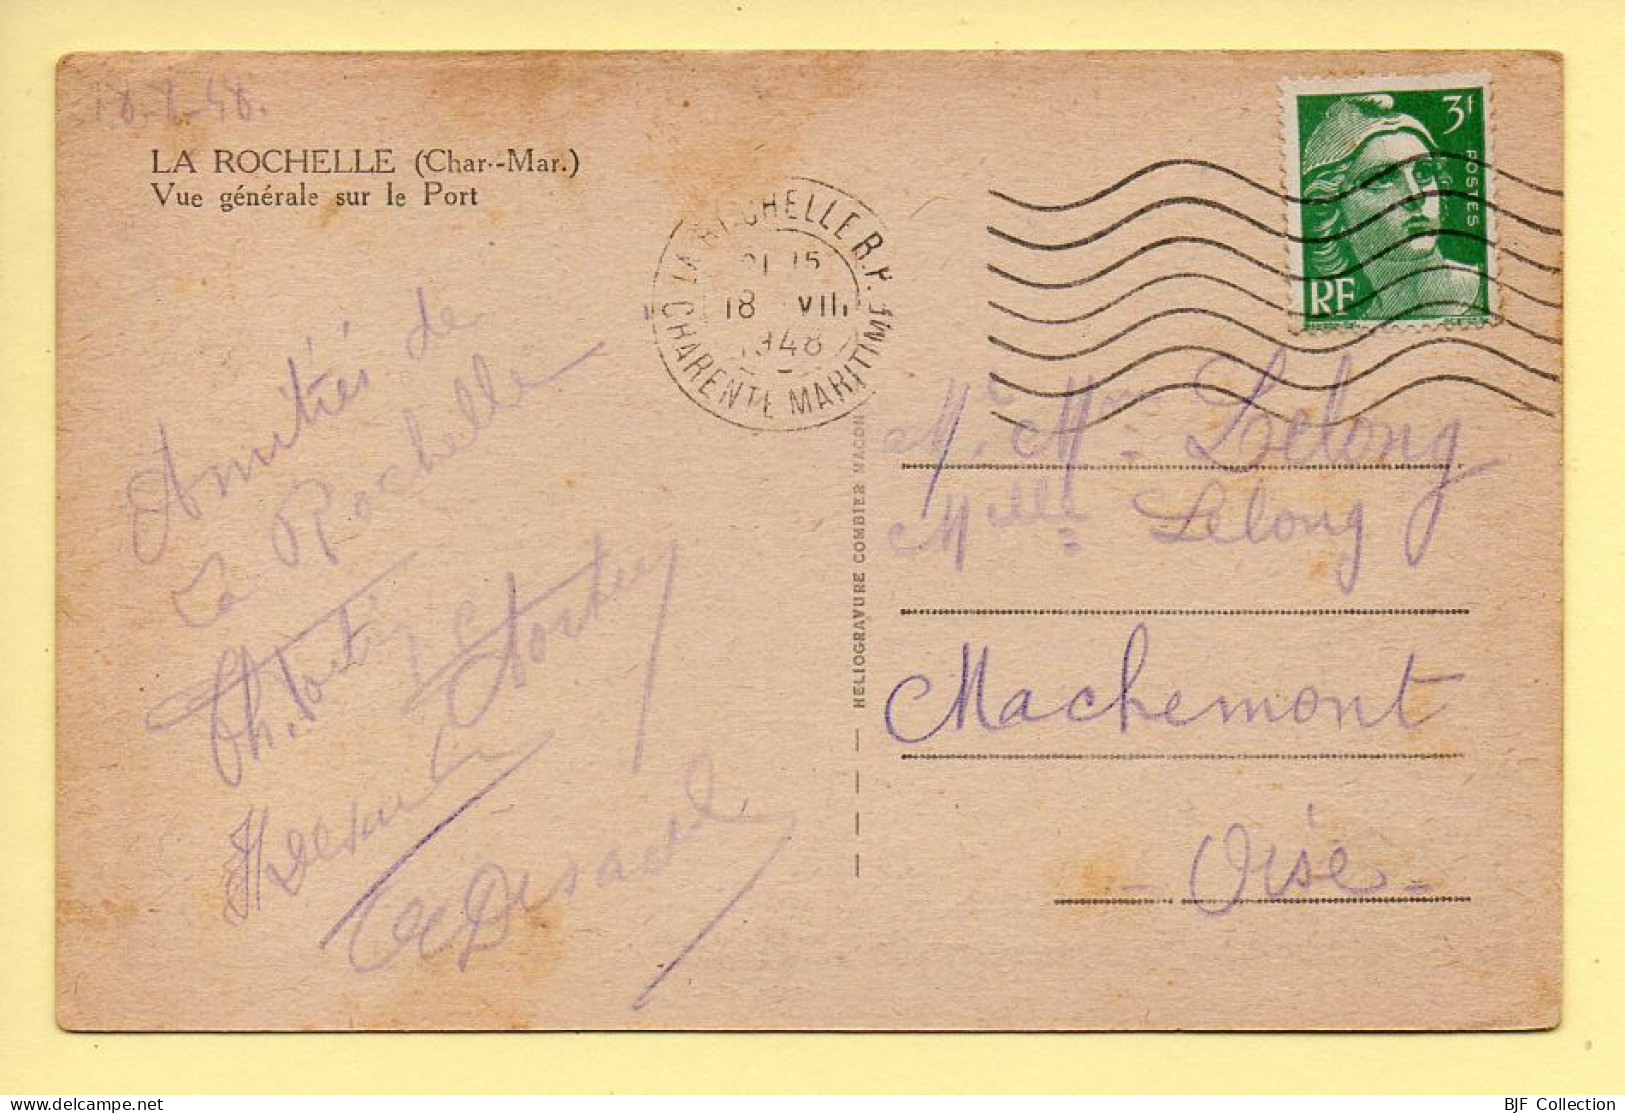 18-8-48.
LA ROCHELLE (Char.-Mar.)
Vue générale sur le Port
LA ROCHELLE R.P.
21 15
18 VIII
1948
CHARENTE MARITIME
3f
POSTES
RF
Amitiés de
La Rochelle
HELIOGRAVURE COMBIER MACON
Mr Mme Lelong
Melle Lelong
Machemont
- Oise -
BJF Collection